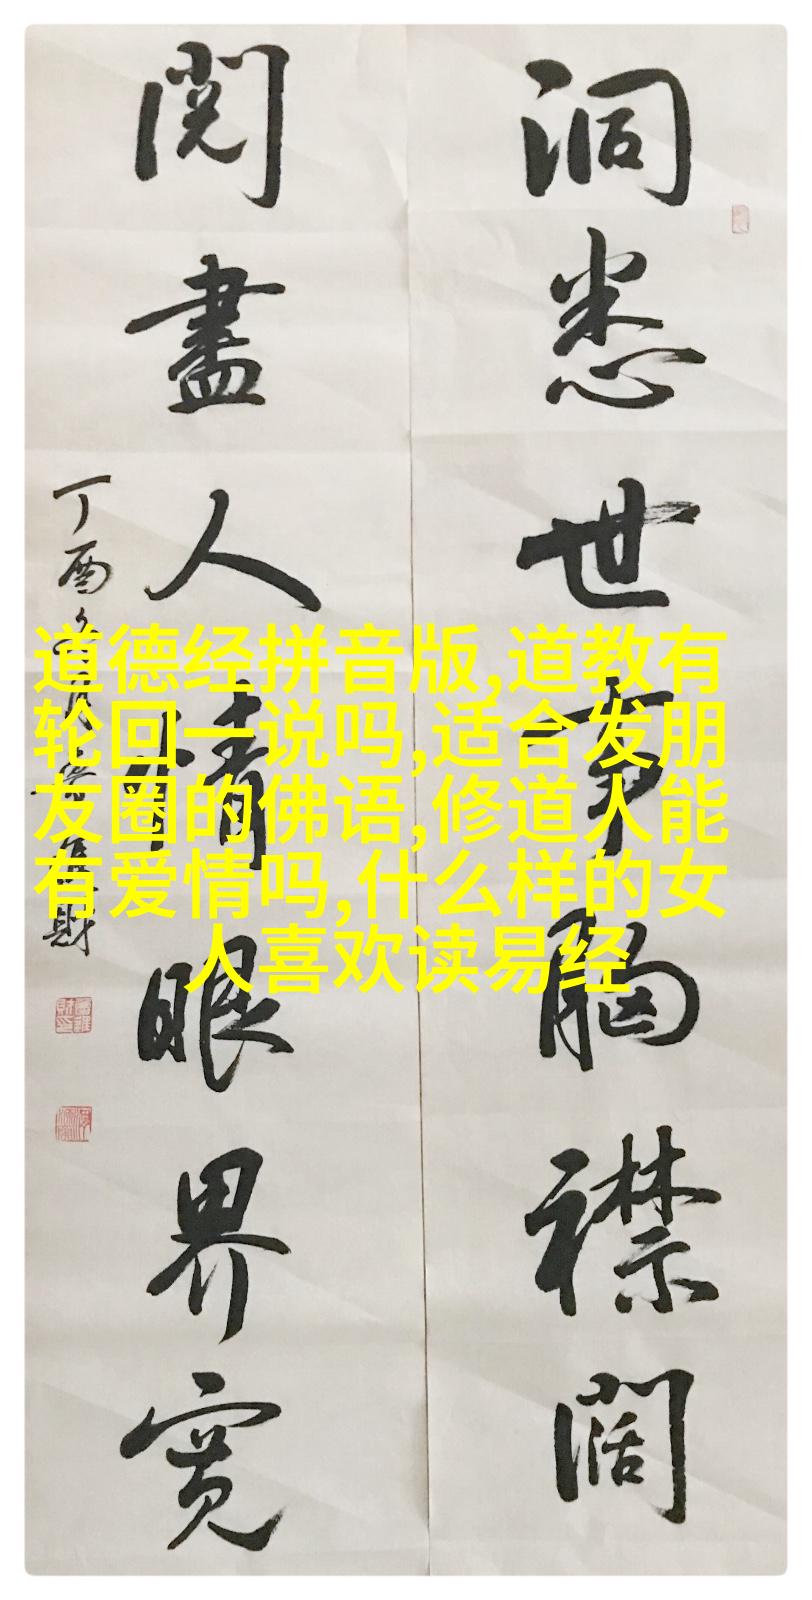 洞悉世事胸襟阔
阅尽人情眼界宽
道德经拼音版,道教有
轮回一说吗,适合发朋
友圈的佛语,修道人能
有爱情吗,什么样的女
人喜欢读易经